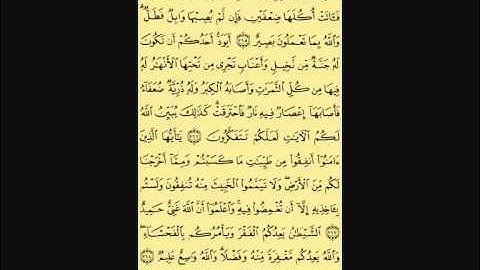 فَـَٔاتَتۡ أُكُلَهَا ضِعۡفَيۡنِ فَإِن لَّمۡ يُصِبۡهَا وَابِلٞ فَطَلّٞۗ
وَٱللَّهُ بِمَا تَعۡمَلُونَ بَصِيرٌ ٢٦٥ أَيَوَدُّ أَحَدُكُمۡ أَن تَكُونَ
لَهُۥ جَنَّةٞ مِّن نَّخِيلٖ وَأَعۡنَابٖ تَجۡرِي مِن تَحۡتِهَا ٱلۡأَنۡهَٰرُ لَهُۥ
فِيهَا مِن كُلِّ ٱلثَّمَرَٰتِ وَأَصَابَهُ ٱلۡكِبَرُ وَلَهُۥ ذُرِّيَّةٞ ضُعَفَآءُ
فَأَصَابَهَآ إِعۡصَارٞ فِيهِ نَارٞ فَٱحۡتَرَقَتۡۗ كَذَٰلِكَ يُبَيِّنُ ٱللَّهُ
لَكُمُ ٱلۡأٓيَٰتِ لَعَلَّكُمۡ تَتَفَكَّرُونَ ٢٦٦ يَٰٓأَيُّهَا ٱلَّذِينَ
ءَامَنُوٓاْ أَنفِقُواْ مِن طَيِّبَٰتِ مَا كَسَبۡتُمۡ وَمِمَّآ أَخۡرَجۡنَا
لَكُم مِّنَ ٱلۡأَرۡضِۖ وَلَا تَيَمَّمُواْ ٱلۡخَبِيثَ مِنۡهُ تُنفِقُونَ وَلَسۡتُم
بِـَٔاخِذِيهِ إِلَّآ أَن تُغۡمِضُواْ فِيهِۚ وَٱعۡلَمُوٓاْ أَنَّ ٱللَّهَ غَنِيٌّ حَمِيدٌ
٢٦٧ ٱلشَّيۡطَٰنُ يَعِدُكُمُ ٱلۡفَقۡرَ وَيَأۡمُرُكُم بِٱلۡفَحۡشَآءِۖ
وَٱللَّهُ يَعِدُكُم مَّغۡفِرَةٗ مِّنۡهُ وَفَضۡلٗاۗ وَٱللَّهُ وَٰسِعٌ عَلِيمٞ ٢٦٨